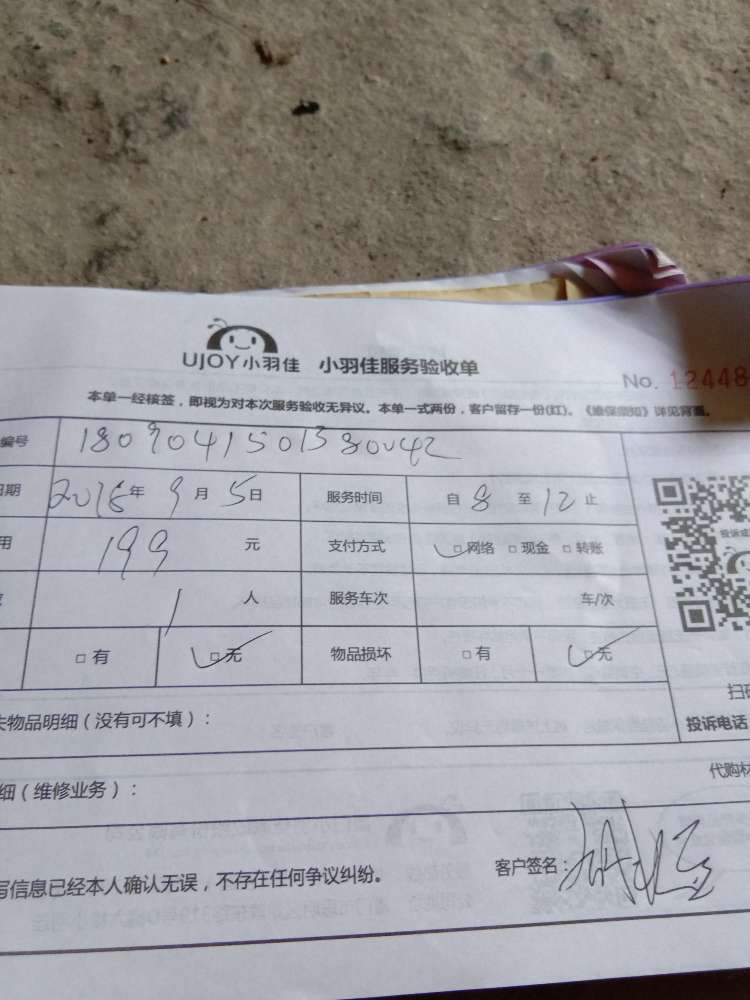 UJOY小羽佳 小羽佳服务验收单
No. 12448
本单一经核签，即视为对本次服务验收无异议。本单一式两份，客户留存一份(红)。《维保须知》详见背面。
编号 1809041501380042
日期 2018年 9月 5日 服务时间 自 8 至 12 止
用 199 元 支付方式 ☑网络 □现金 □转账
1 人 服务车次 车/次
□有 ☑无 物品损坏 □有 ☑无
投诉或
扫码
失物品明细（没有可不填）： 投诉电话
代购材
细（维修业务）：
写信息已经本人确认无误，不存在任何争议纠纷。 客户签名：